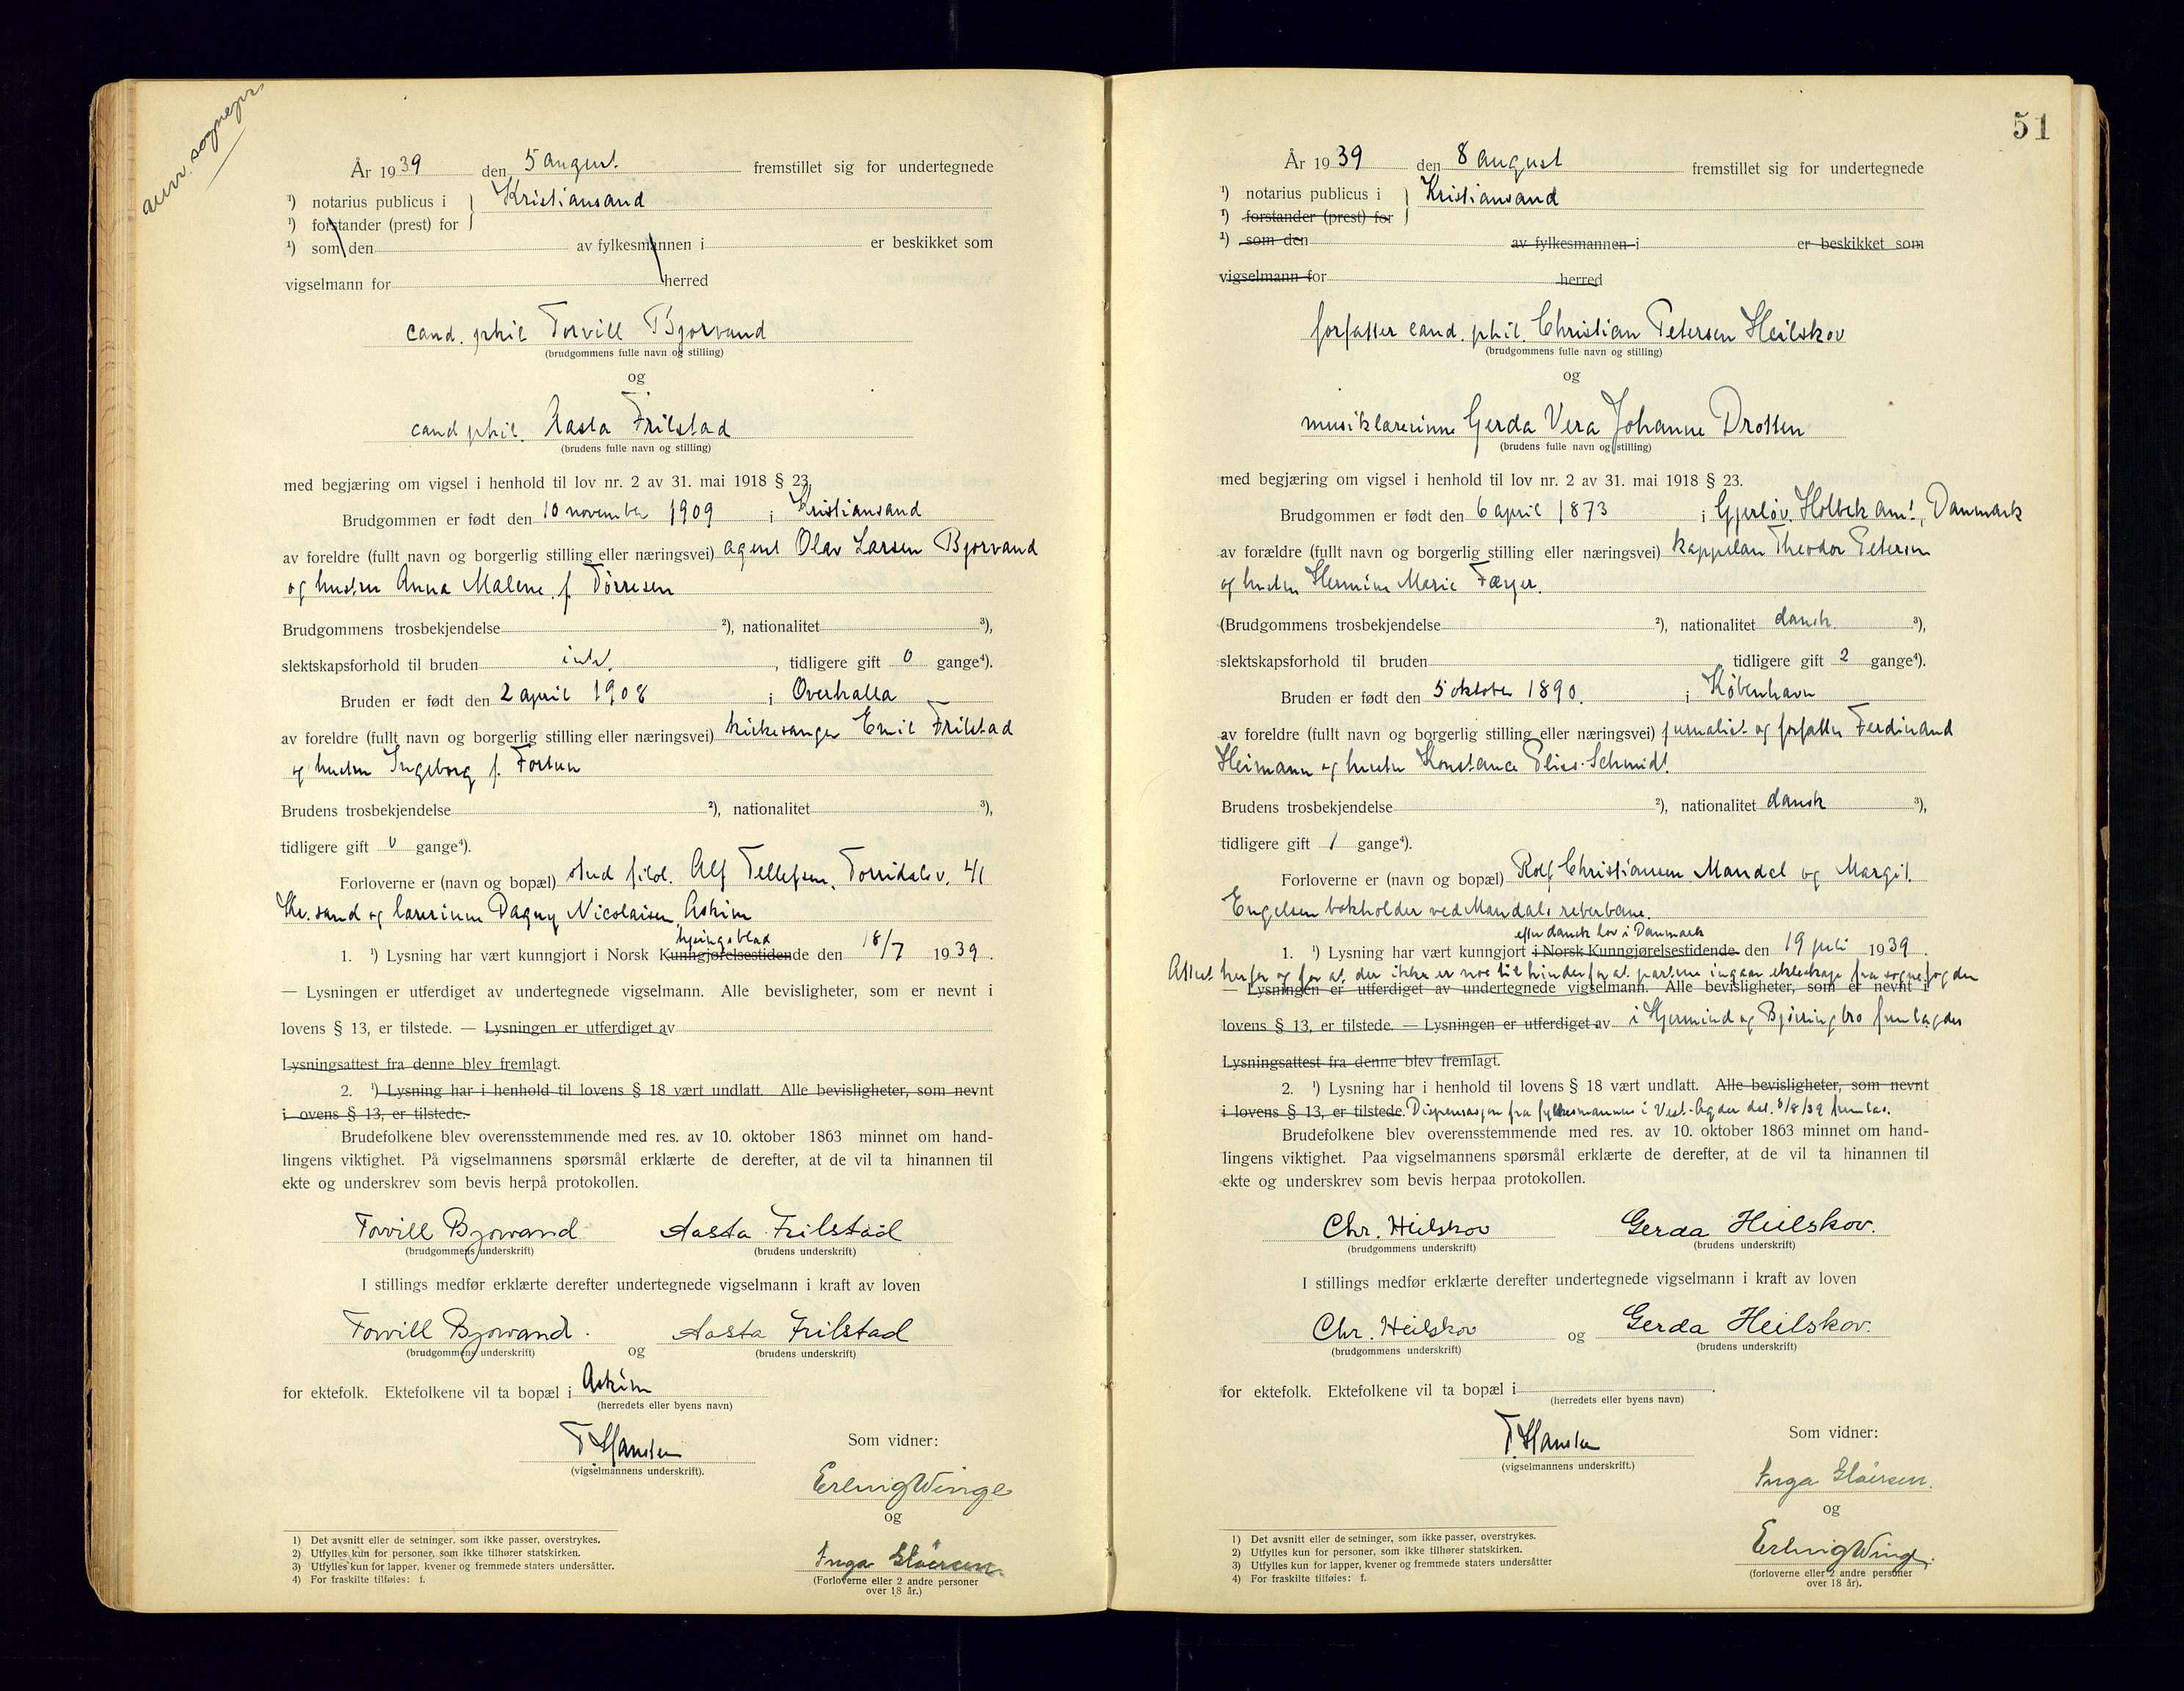 anm. sognepr
År 1939 den 5 august. fremstillet sig for undertegnede
¹) notarius publicus i } Kristiansand
¹) forstander (prest) for
¹) som den av fylkesmannen i er beskikket som
vigselmann for herred
cand. phil Torvill Bjorvand
(brudgommens fulle navn og stilling)
og
cand phil. Aasta Frilstad
(brudens fulle navn og stilling)
med begjæring om vigsel i henhold til lov nr. 2 av 31. mai 1918 § 23.
Brudgommen er født den 10 november 1909 i Kristiansand
av foreldre (fullt navn og borgerlig stilling eller næringsvei) agent Olav Larsen Bjorvand
og hustru Anna Malene f. Tørresen
Brudgommens trosbekjendelse ²), nationalitet ³),
slektskapsforhold til bruden intet, tidligere gift 0 gange⁴).
Bruden er født den 2 april 1908 i Overhalla
av foreldre (fullt navn og borgerlig stilling eller næringsvei) kirkesanger Emil Frilstad
og hustru Ingeborg f. Fortun
Brudens trosbekjendelse ²), nationalitet ³),
tidligere gift 0 gange⁴).
Forloverne er (navn og bopæl) stud filol. Alf Tellefsen, Torridalsv. 41
Kr.sand og lærerinne Dagny Nicolaisen Askim
hyringsblad
1. ¹) Lysning har vært kunngjort i Norsk Kunngjørelsestidende den 18/7 1939.
— Lysningen er utferdiget av undertegnede vigselmann. Alle bevisligheter, som er nevnt i
lovens § 13, er tilstede. — Lysningen er utferdiget av
Lysningsattest fra denne blev fremlagt.
2. ¹) Lysning har i henhold til lovens § 18 vært undlatt. Alle bevisligheter, som nevnt
i ovens § 13, er tilstede.
Brudefolkene blev overensstemmende med res. av 10. oktober 1863 minnet om hand-
lingens viktighet. På vigselmannens spørsmål erklærte de derefter, at de vil ta hinannen til
ekte og underskrev som bevis herpå protokollen.
Torvill Bjorvand Aasta Frilstad
(brudgommens underskrift) (brudens underskrift)
I stillings medfør erklærte derefter undertegnede vigselmann i kraft av loven
Torvill Bjorvand. Aasta Frilstad
(brudgommens underskrift) og (brudens underskrift)
for ektefolk. Ektefolkene vil ta bopæl i Askim
(herredets eller byens navn)
T Hansen Som vidner:
(vigselmannens underskrift).
Erling Winge
og
Inga Glöersen
(Forloverne eller 2 andre personer
over 18 år.)
1) Det avsnitt eller de setninger, som ikke passer, overstrykes.
2) Utfylles kun for personer, som ikke tilhører statskirken.
3) Utfylles kun for lapper, kvener og fremmede staters undersåtter.
4) For fraskilte tilføies: f.
51
År 1939 den 8 august fremstillet sig for undertegnede
¹) notarius publicus i } Kristiansand
¹) forstander (prest) for
¹) som den av fylkesmannen i er beskikket som
vigselmann for herred
forfatter cand. phil. Christian Petersen Heilskov
(brudgommens fulle navn og stilling)
og
musiklærerinne Gerda Vera Johanne Drotten
(brudens fulle navn og stilling)
med begjæring om vigsel i henhold til lov nr. 2 av 31. mai 1918 § 23.
Brudgommen er født den 6 april 1873 i Gjerløv, Holbek amt, Danmark
av forældre (fullt navn og borgerlig stilling eller næringsvei) kappelan Theodor Petersen
og hustru Hermine Marie Færger.
(Brudgommens trosbekjendelse ²), nationalitet dansk ³),
slektskapsforhold til bruden, tidligere gift 2 gange⁴).
Bruden er født den 5 oktober 1890. i København
av foreldre (fullt navn og borgerlig stilling eller næringsvei) jurnalist og forfatter Ferdinand
Heimann og hustru Konstance Elise Schmidt.
Brudens trosbekjendelse ²), nationalitet dansk ³),
tidligere gift 1 gange⁴).
Forloverne er (navn og bopæl) Rolf Christiansen Mandal og Margit
Engelsen bokholder ved Mandals reberbane.
efter dansk lov i Danmark
1. ¹) Lysning har vært kunngjort i Norsk Kunngjørelsestidende. den 19 juli 1939.
Attest herfor og for at der ikke er noe til hinder for at partene ingaar ekteskap fra sognefogden
— Lysningen er utferdiget av undertegnede vigselmann. Alle bevisligheter, som er nevnt i
lovens § 13, er tilstede. — Lysningen er utferdiget av i Hjermind og Bjerringbro fremlagdes
Lysningsattest fra denne blev fremlagt.
2. ¹) Lysning har i henhold til lovens § 18 vært undlatt. Alle bevisligheter, som nevnt
i lovens § 13, er tilstede. Dispensasjon fra fylkesmannen i Vest-Agder dat. 8/8/39 fremlas.
Brudefolkene blev overensstemmende med res. av 10. oktober 1863 minnet om hand-
lingens viktighet. Paa vigselmannens spørsmål erklærte de derefter, at de vil ta hinannen til
ekte og underskrev som bevis herpaa protokollen.
Chr. Heilskov Gerda Heilskov.
(brudgommens underskrift) (brudens underskrift)
I stillings medfør erklærte derefter undertegnede vigselmann i kraft av loven
Chr. Heilskov og Gerda Heilskov.
(brudgommens underskrift) (brudens underskrift)
for ektefolk. Ektefolkene vil ta bopæl i .
(herredets eller byens navn)
T Hansen Som vidner:
(vigselmannens underskrift.)
Inga Glöersen.
og
Erling Winge.
(forloverne eller 2 andre personer
over 18 år).
1) Det avsnitt eller de setninger, som ikke passer, overstrykes.
2) Utfylles kun for personer, som ikke tilhører statskirken.
3) Utfylles kun for lapper, kvener og fremmede staters undersåtter
4) For fraskilte tilføies: f.